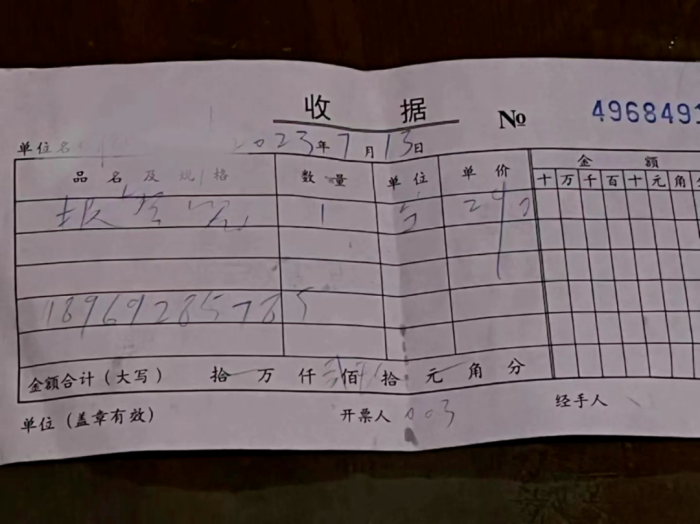 收 据 № 4968491
单位名 2023年7月13日
品名及规格 数量 单位 单价 金额
十 万 千 百 十 元 角 分
1 台
18969285785
金额合计（大写） 拾 万 仟 佰 拾 元 角 分
单位（盖章有效） 开票人 003 经手人